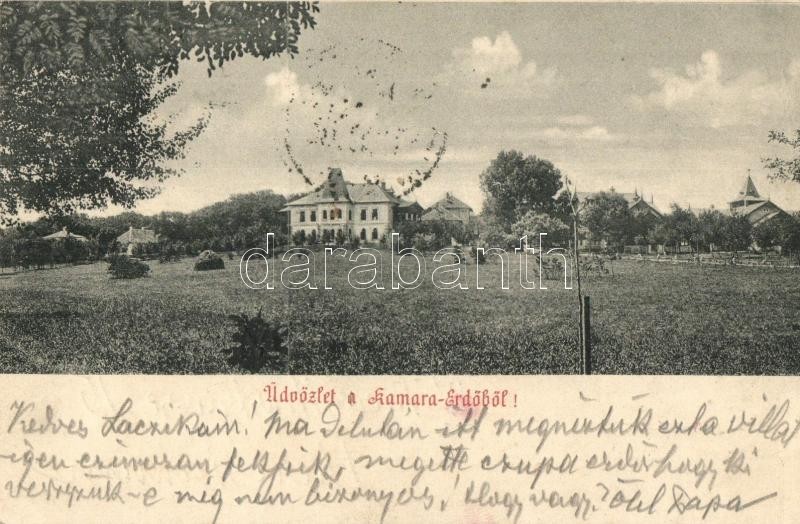 darabanth
Üdvözlet a Kamara-Erdőből!
Kedves Laczikám! Ma délután itt megnéztük ezt a villát
igen czinosan fekszik, megette csupa erdő, hogy ki
veszszük-e még nem bizonyos! Hogy vagy? Ölel Papa